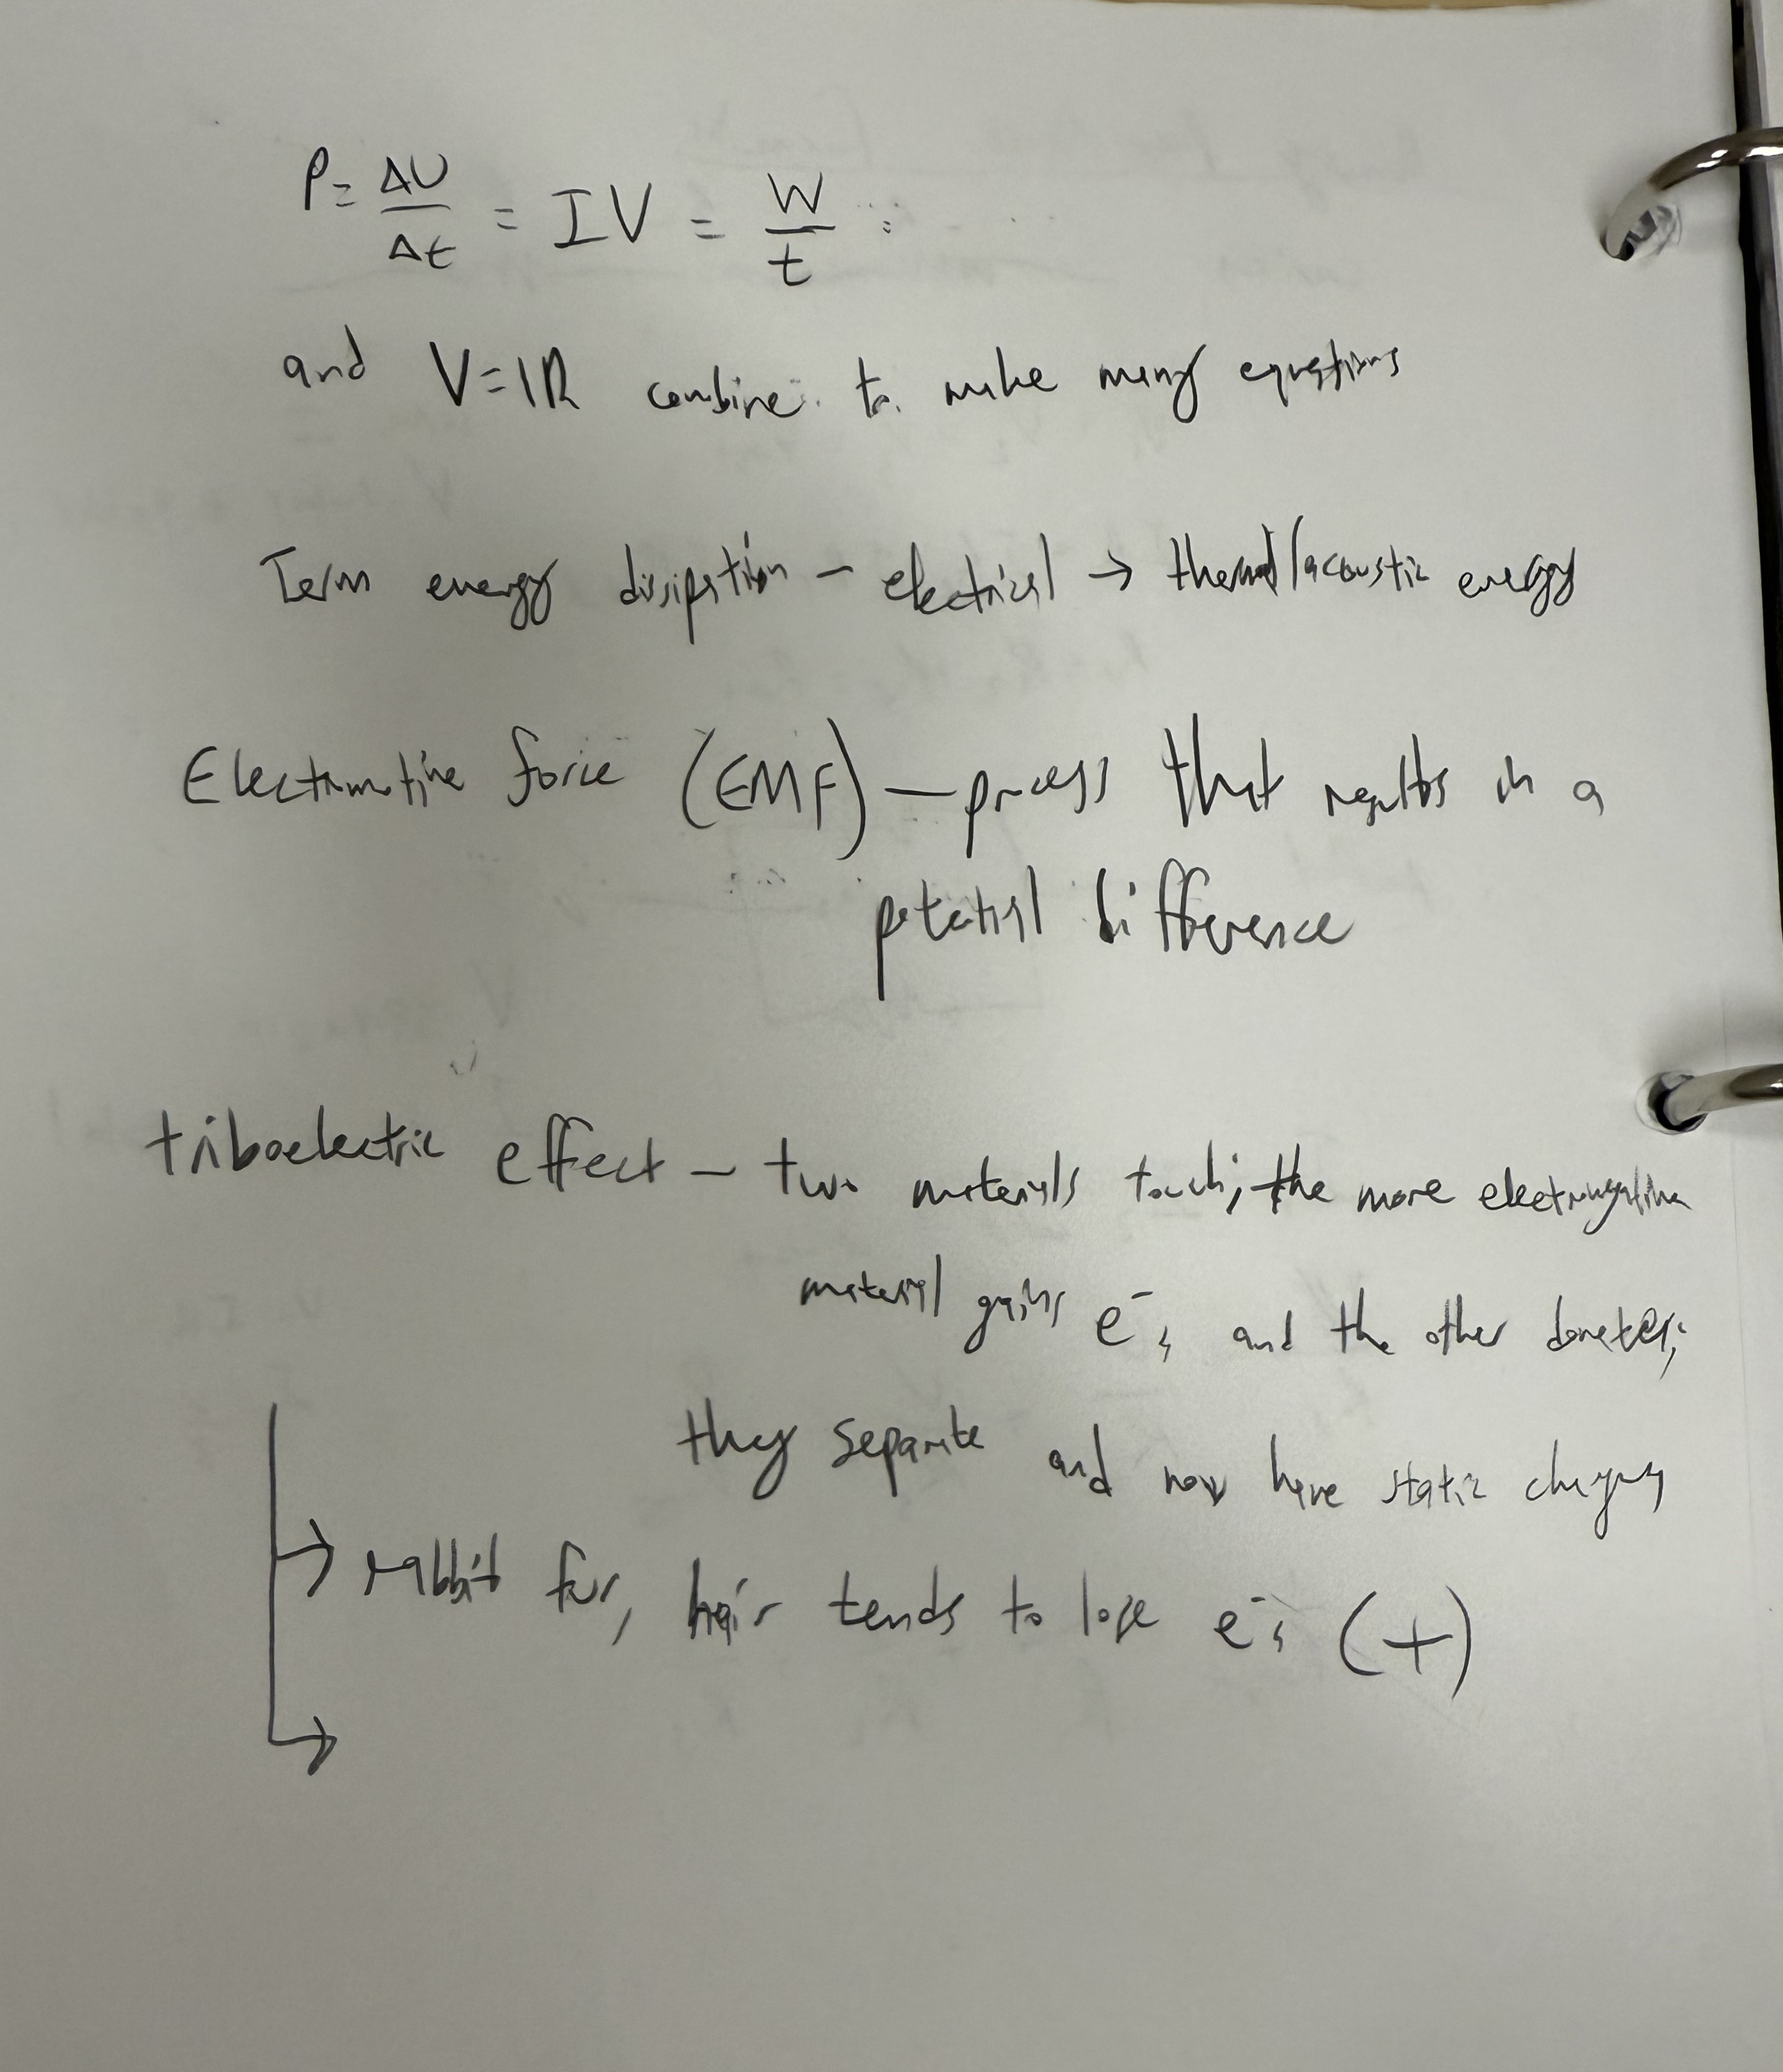 P = ΔU/Δt = IV = W/t
and V=IR combine to make many equations
Term energy dissipation – electrical → thermal/acoustic energy
Electromotive force (EMF) — process that results in a
potential difference
triboelectric effect – two materials touch; the more electronegative
material gains e⁻s and the other donates;
they separate and now have static charges
→ rabbit fur, hair tends to lose e⁻s (+)
→